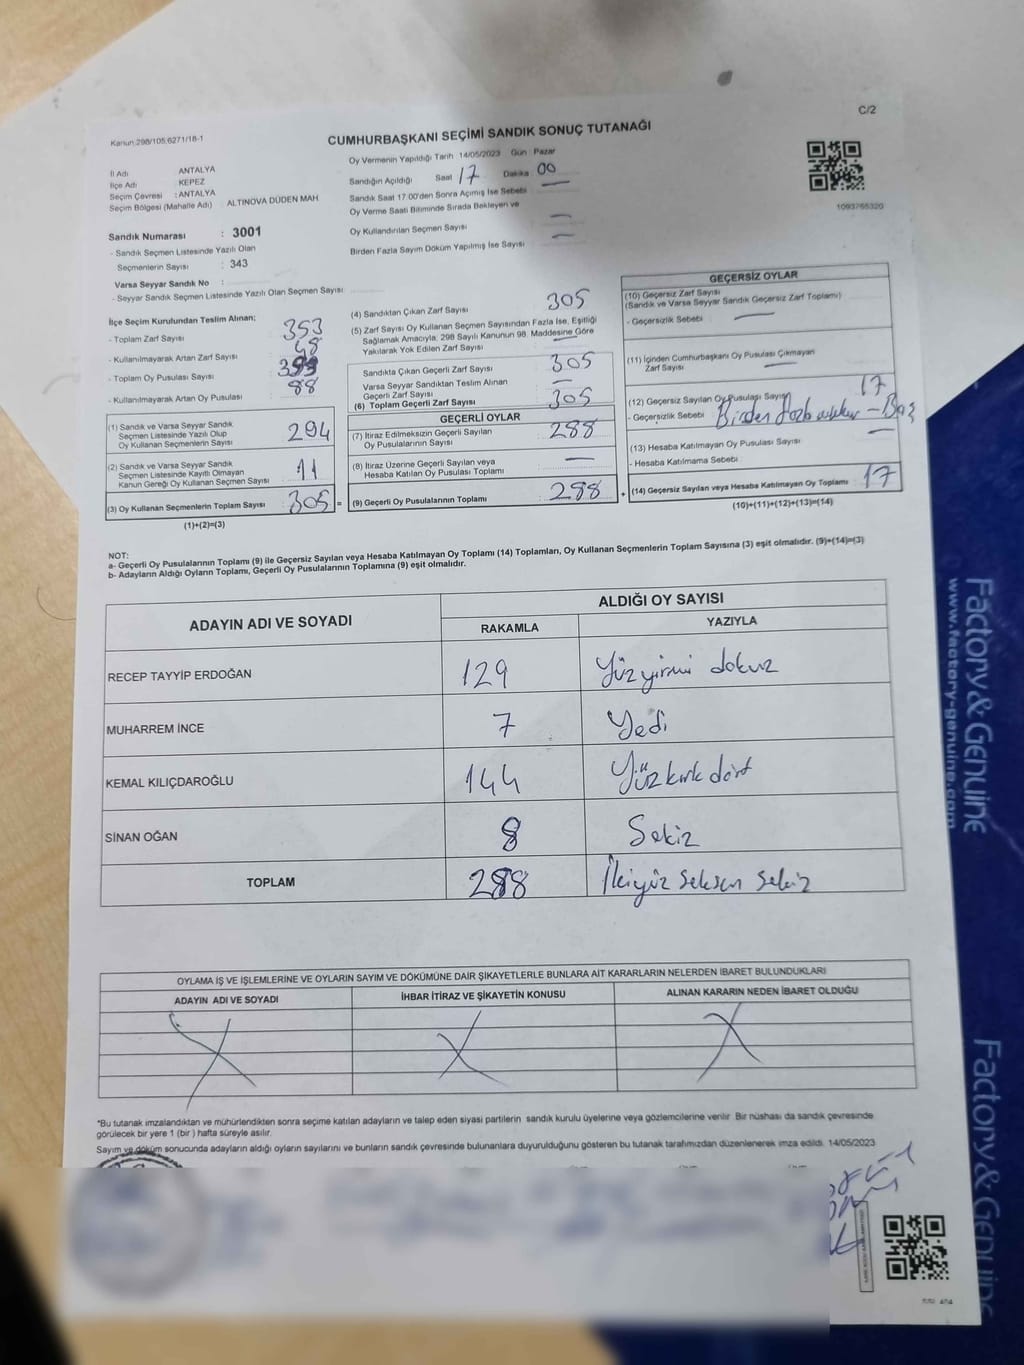 C/2
Kanun:298/105;6271/18-1
CUMHURBAŞKANI SEÇİMİ SANDIK SONUÇ TUTANAĞI
İl Adı ANTALYA
İlçe Adı : KEPEZ
Seçim Çevresi : ANTALYA
Seçim Bölgesi (Mahalle Adı) : ALTINOVA DÜDEN MAH.
Oy Vermenin Yapıldığı Tarih 14/05/2023 Gün Pazar
Sandığın Açıldığı Saat 17 Dakika 00
Sandık Saat 17.00'den Sonra Açılmış İse Sebebi
Oy Verme Saati Bitiminde Sırada Bekleyen ve
Oy Kullandırılan Seçmen Sayısı
Birden Fazla Sayım Döküm Yapılmış İse Sayısı
1093765320
Sandık Numarası : 3001
- Sandık Seçmen Listesinde Yazılı Olan
Seçmenlerin Sayısı : 343
Varsa Seyyar Sandık No :
- Seyyar Sandık Seçmen Listesinde Yazılı Olan Seçmen Sayısı:
İlçe Seçim Kurulundan Teslim Alınan;
- Toplam Zarf Sayısı 353
- Kullanılmayarak Artan Zarf Sayısı 48
- Toplam Oy Pusulası Sayısı
- Kullanılmayarak Artan Oy Pusulası 88
(1) Sandık ve Varsa Seyyar Sandık
Seçmen Listesinde Yazılı Olup
Oy Kullanan Seçmenlerin Sayısı 294
(2) Sandık ve Varsa Seyyar Sandık
Seçmen Listesinde Kayıtlı Olmayan
Kanun Gereği Oy Kullanan Seçmen Sayısı 11
(3) Oy Kullanan Seçmenlerin Toplam Sayısı 305 =
(1)+(2)=(3)
(4) Sandıktan Çıkan Zarf Sayısı 305
(5) Zarf Sayısı Oy Kullanan Seçmen Sayısından Fazla İse, Eşitliği
Sağlamak Amacıyla; 298 Sayılı Kanunun 98. Maddesine Göre
Yakılarak Yok Edilen Zarf Sayısı
Sandıkta Çıkan Geçerli Zarf Sayısı 305
Varsa Seyyar Sandıktan Teslim Alınan
Geçerli Zarf Sayısı
(6) Toplam Geçerli Zarf Sayısı 305
GEÇERLİ OYLAR
(7) İtiraz Edilmeksizin Geçerli Sayılan
Oy Pusulalarının Sayısı 288
(8) İtiraz Üzerine Geçerli Sayılan veya
Hesaba Katılan Oy Pusulası Toplamı
(9) Geçerli Oy Pusulalarının Toplamı 288 +
GEÇERSİZ OYLAR
(10) Geçersiz Zarf Sayısı
(Sandık ve Varsa Seyyar Sandık Geçersiz Zarf Toplamı)
- Geçersizlik Sebebi :
(11) İçinden Cumhurbaşkanı Oy Pusulası Çıkmayan
Zarf Sayısı
(12) Geçersiz Sayılan Oy Pusulası Sayısı 17
- Geçersizlik Sebebi Birden
(13) Hesaba Katılmayan Oy Pusulası Sayısı
- Hesaba Katılmama Sebebi
(14) Geçersiz Sayılan veya Hesaba Katılmayan Oy Toplamı 17
(10)+(11)+(12)+(13)=(14)
NOT:
a- Geçerli Oy Pusulalarının Toplamı (9) ile Geçersiz Sayılan veya Hesaba Katılmayan Oy Toplamı (14) Toplamları, Oy Kullanan Seçmenlerin Toplam Sayısına (3) eşit olmalıdır. (9)+(14)=(3)
b- Adayların Aldığı Oyların Toplamı, Geçerli Oy Pusulalarının Toplamına (9) eşit olmalıdır.
ADAYIN ADI VE SOYADI ALDIĞI OY SAYISI
RAKAMLA YAZIYLA
RECEP TAYYİP ERDOĞAN 129 Yüzyirmi dokuz
MUHARREM İNCE 7 Yedi
KEMAL KILIÇDAROĞLU 144 Yüzkırk dört
SİNAN OĞAN 8 Sekiz
TOPLAM 288 İkiyüz seksen sekiz
OYLAMA İŞ VE İŞLEMLERİNE VE OYLARIN SAYIM VE DÖKÜMÜNE DAİR ŞİKAYETLERLE BUNLARA AİT KARARLARIN NELERDEN İBARET BULUNDUKLARI
ADAYIN ADI VE SOYADI İHBAR İTİRAZ VE ŞİKAYETİN KONUSU ALINAN KARARIN NEDEN İBARET OLDUĞU
*Bu tutanak imzalandıktan ve mühürlendikten sonra seçime katılan adayların ve talep eden siyasi partilerin sandık kurulu üyelerine veya gözlemcilerine verilir. Bir nüshası da sandık çevresinde
görülecek bir yere 1 (bir) hafta süreyle asılır.
Sayım ve döküm sonucunda adayların aldığı oyların sayılarını ve bunların sandık çevresinde bulunanlara duyurulduğunu gösteren bu tutanak tarafımızdan düzenlenerek imza edildi. 14/05/2023
Factory & Genuine
www.factory-genuine.com
Factory & Genuine